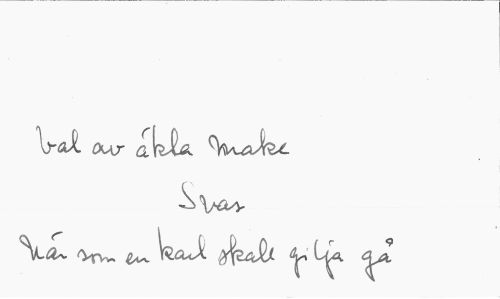 Val av äkta make
Svar
När som en karl skall gilja gå